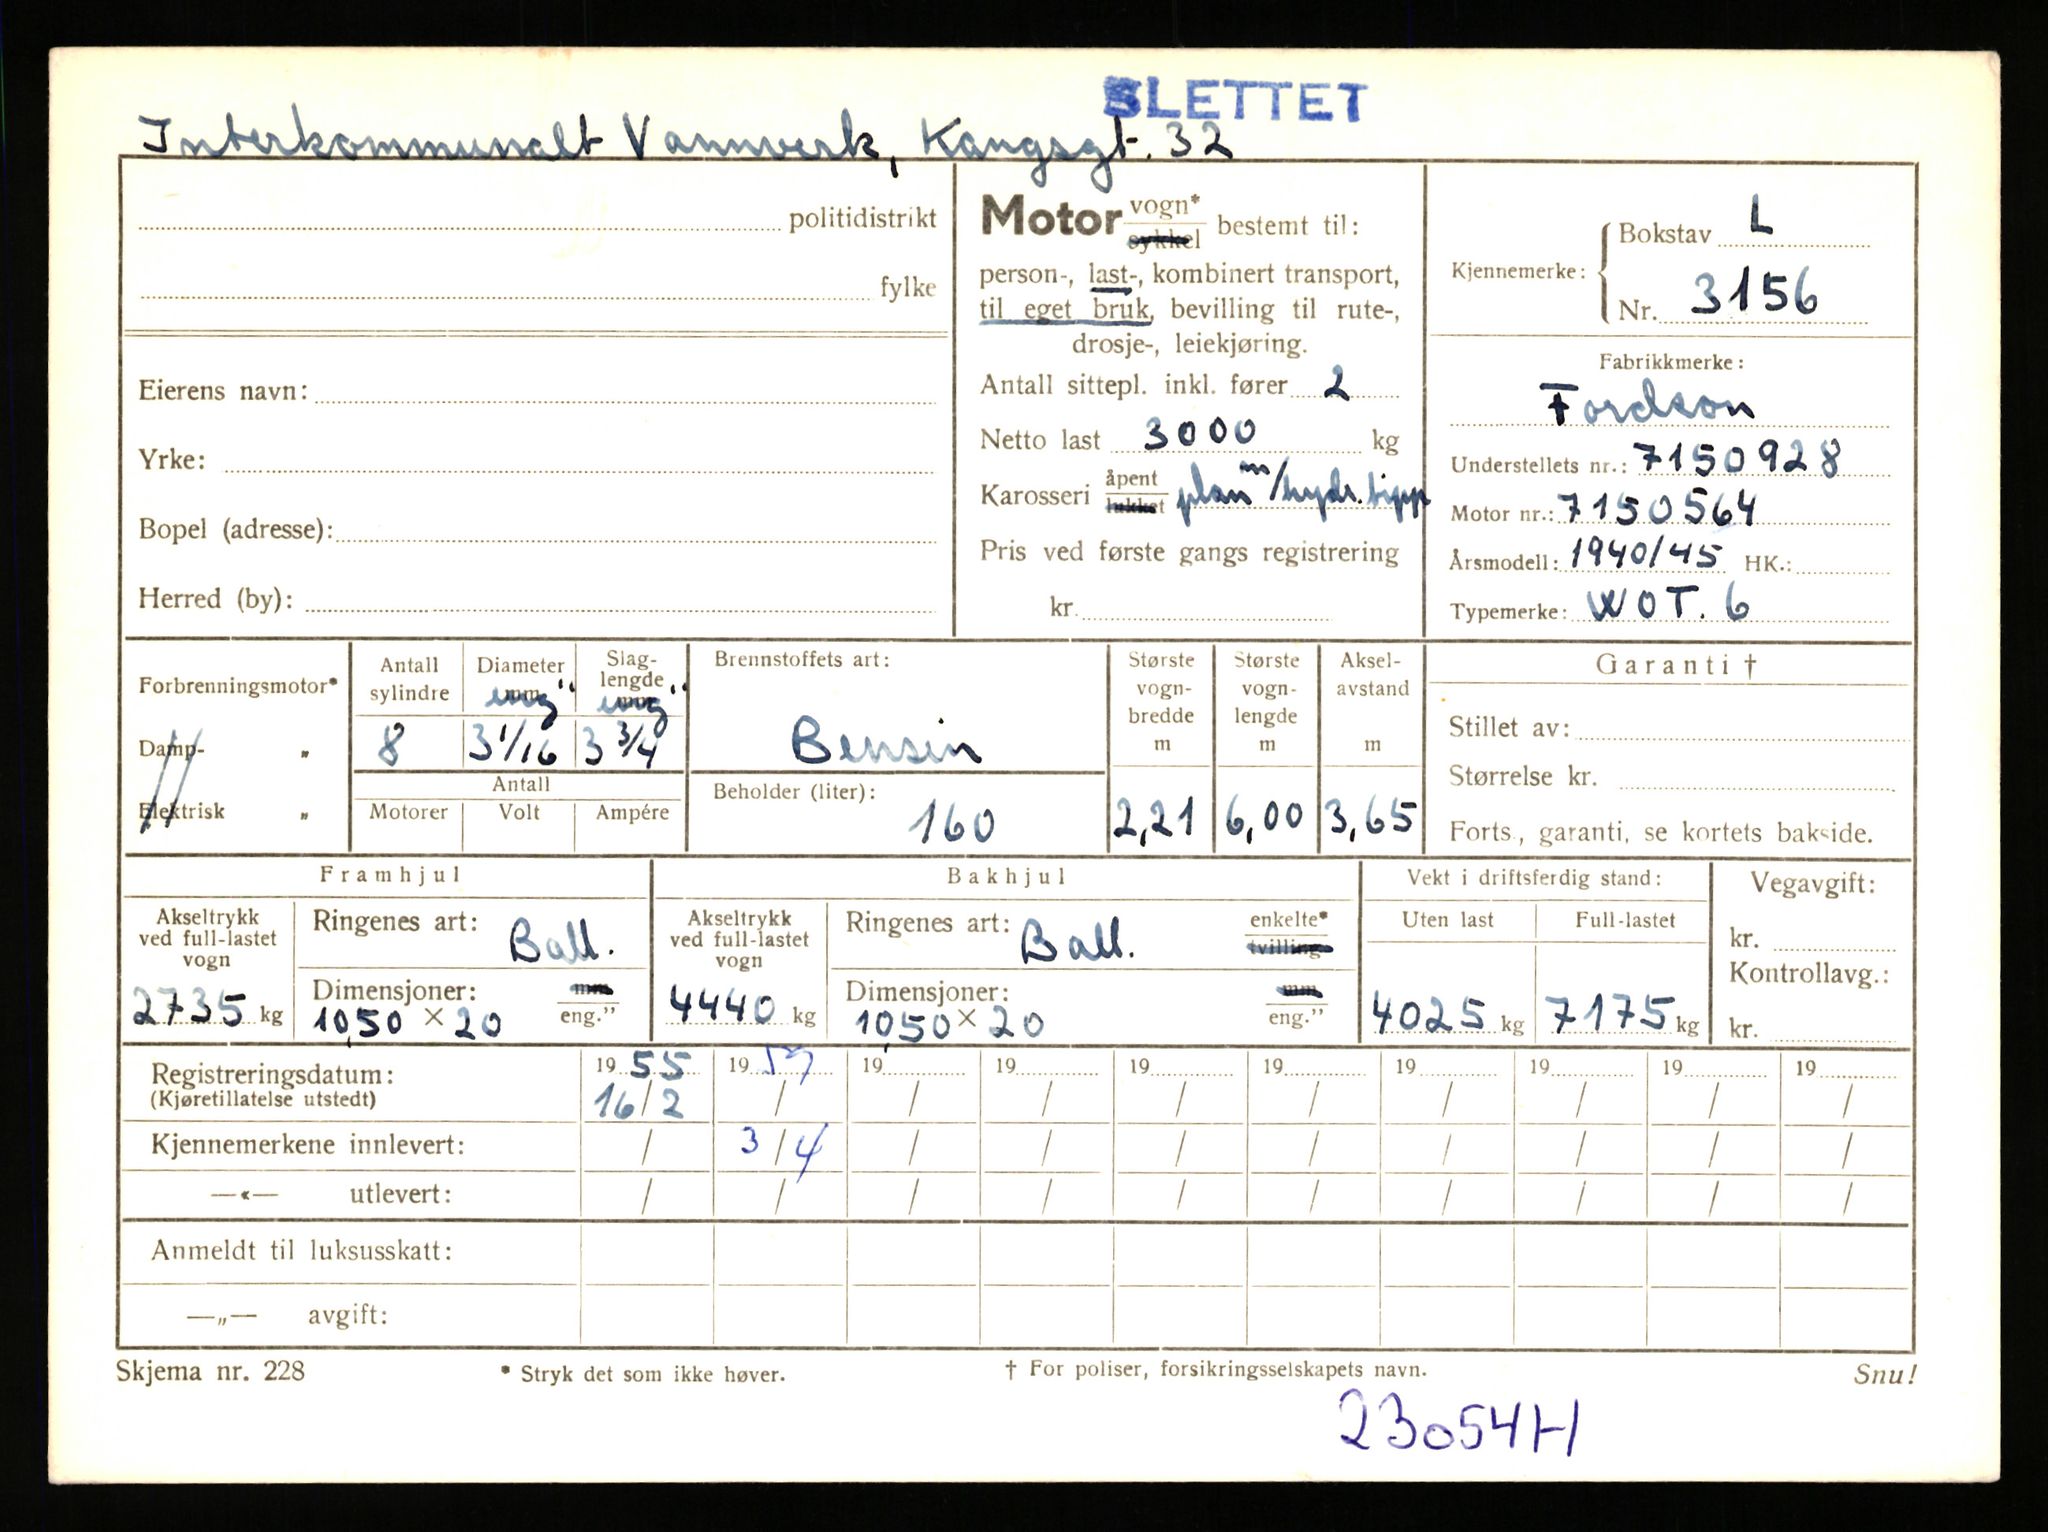 SLETTET
Interkommunalt Vannverk, Kongsgt. 32
politidistrikt
fylke
Eierens navn:
Yrke:
Bopel (adresse):
Herred (by):
Motor vogn* sykkel bestemt til:
person-, last-, kombinert transport,
til eget bruk, bevilling til rute-,
drosje-, leiekjøring.
Antall sittepl. inkl. fører 2
Netto last 3000 kg
Karosseri åpent lukket plan m/hydr. tipp
Pris ved første gangs registrering
kr.
Kjennemerke: Bokstav L
Nr. 3156
Fabrikkmerke:
Fordson
Understellets nr.: 7150928
Motor nr.: 7150564
Årsmodell: 1940/45 HK.:
Typemerke: WOT. 6
Forbrenningsmotor*
Damp- „
Elektrisk „
Antall sylindre
8
Diameter mm eng"
3 1/16
Slag-lengde mm eng"
3 3/4
Antall
Motorer Volt Ampére
Brennstoffets art:
Bensin
Beholder (liter):
160
Største vogn-bredde m
2,21
Største vogn-lengde m
6,00
Aksel-avstand m
3,65
Garanti †
Stillet av:
Størrelse kr.
Forts., garanti, se kortets bakside.
Framhjul
Akseltrykk ved full-lastet vogn
2735 kg
Ringenes art: Ball.
Dimensjoner: mm
10,50 × 20 eng."
Bakhjul
Akseltrykk ved full-lastet vogn
4440 kg
Ringenes art: Ball. enkelte* tvilling
Dimensjoner: mm
10,50 × 20 eng."
Vekt i driftsferdig stand:
Uten last Full-lastet
4025 kg 7175 kg
Vegavgift:
kr.
Kontrollavg.:
kr.
Registreringsdatum: 19 55 19 57 19 19 19 19 19 19 19 19
(Kjøretillatelse utstedt) 16/2 / / / / / / / / /
Kjennemerkene innlevert: / 3/4 / / / / / / / /
—«— utlevert: / / / / / / / / / /
Anmeldt til luksusskatt:
—„— avgift:
Skjema nr. 228 * Stryk det som ikke høver. † For poliser, forsikringsselskapets navn. Snu!
23054H